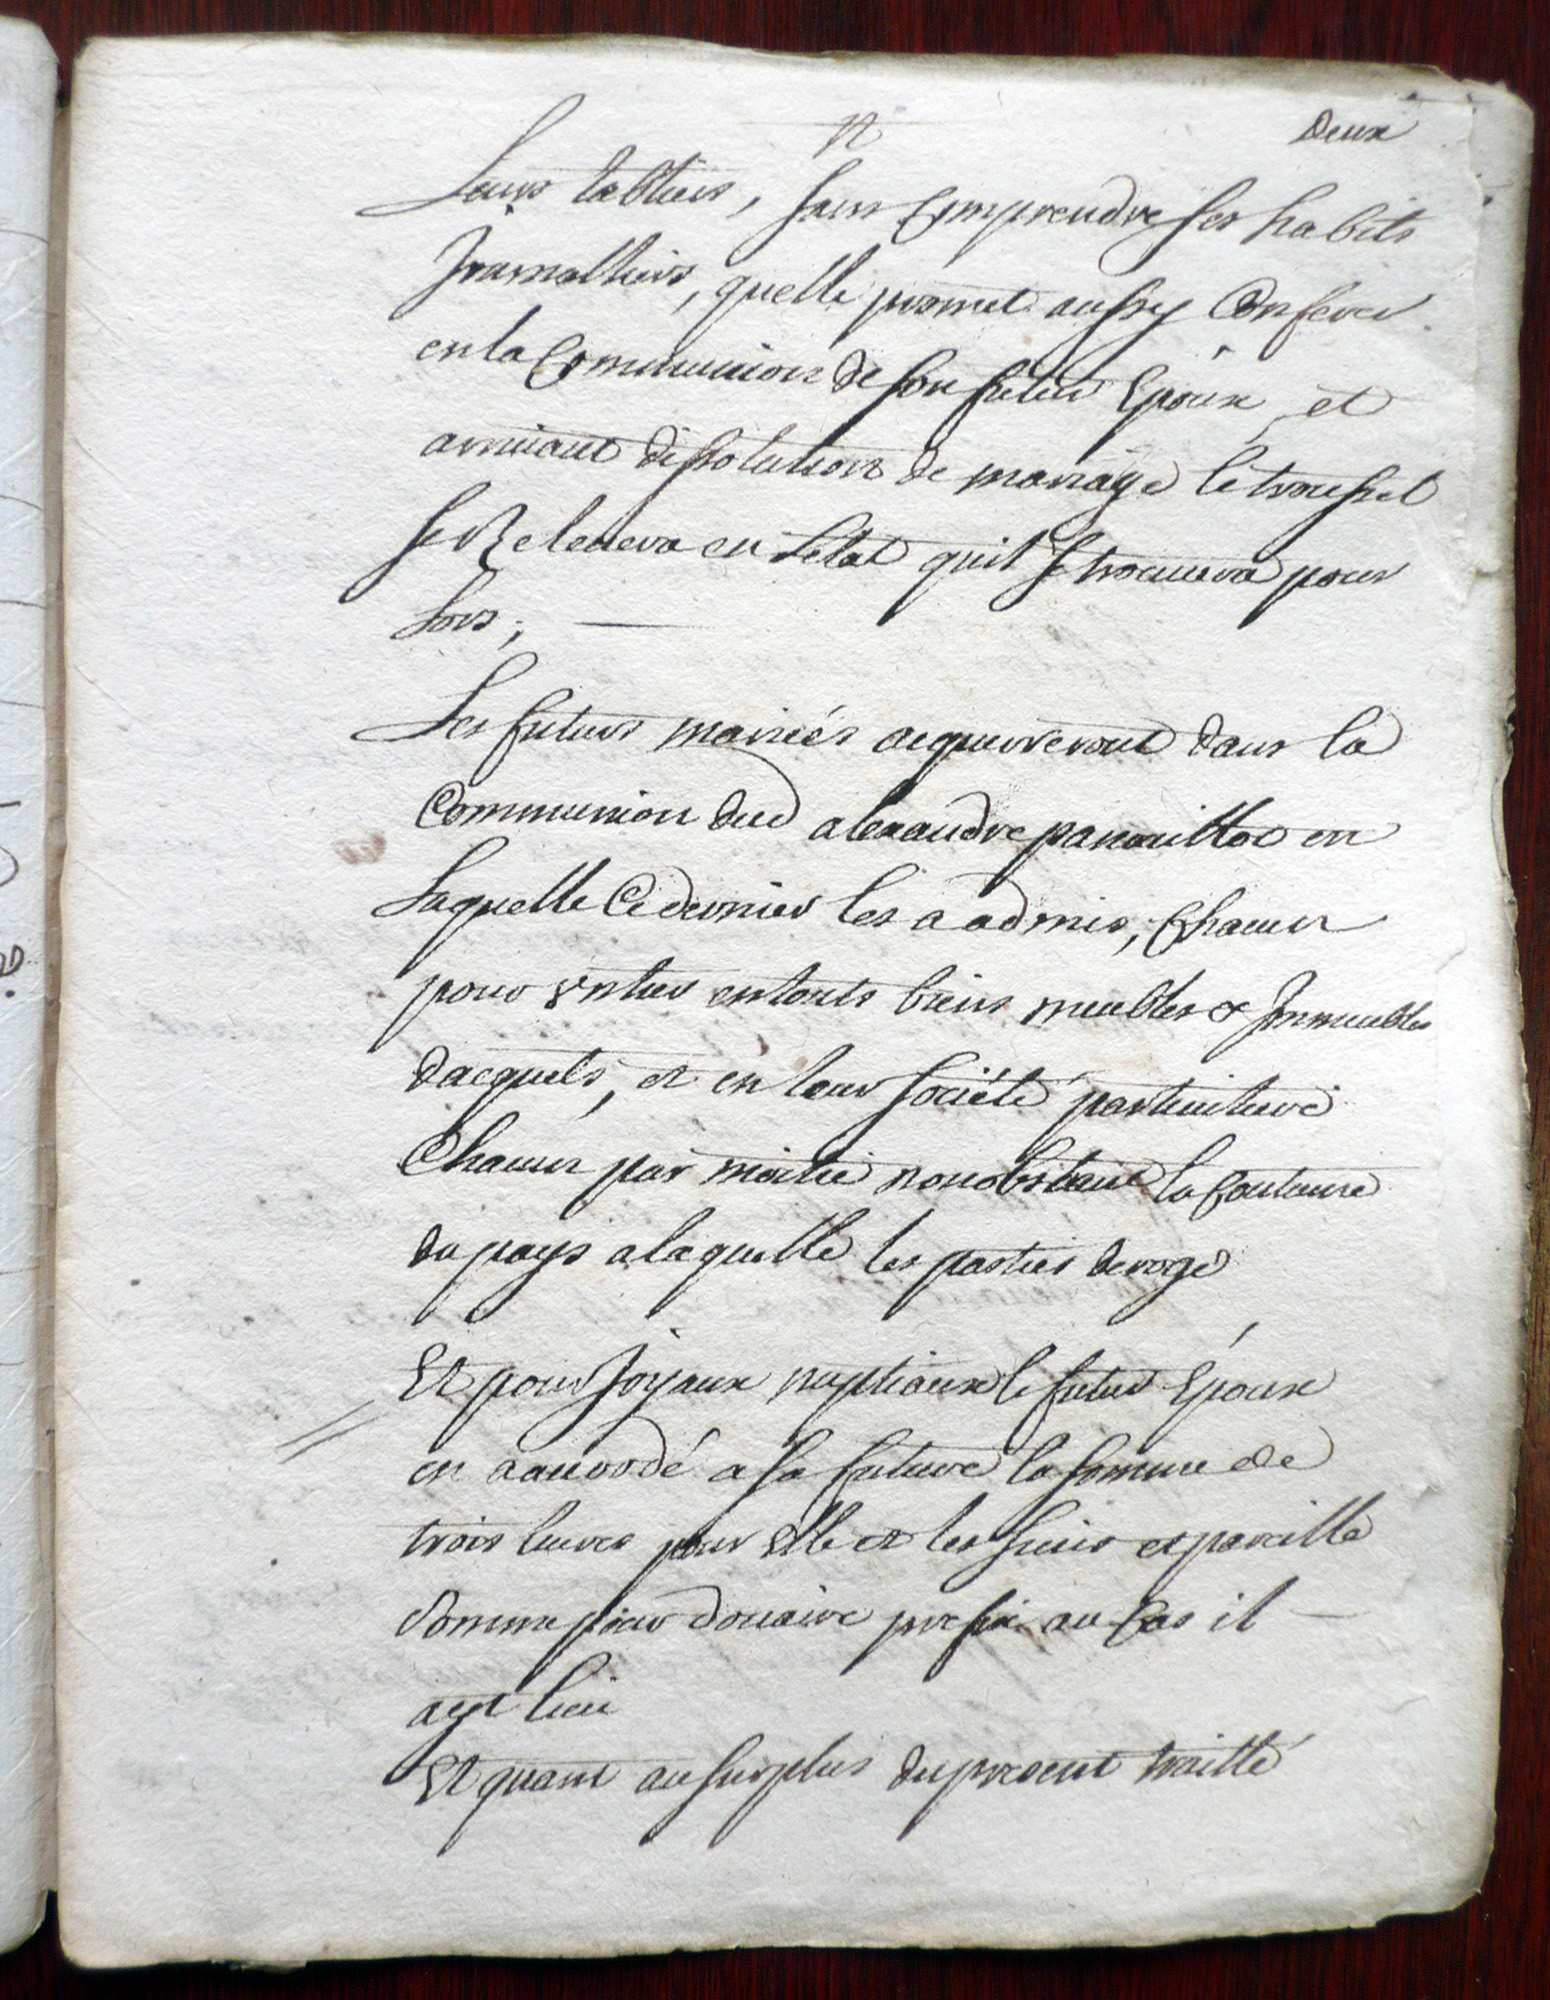 Deux
Leurs tabliers, sans Comprendre ses habits
Journalliers, quelle promet aussy Conferer
en la Communion de son futur Epoux et
arrivant dissolution de mariage le troussel
se Relevera en Letat quil se trouvera pour
Lors;
Les futurs mariés acquerreront dans la
Communion dud alexandre panouillot en
Laquelle Ce dernier les a admis, Chacun
pour entier en touts biens meubles & Immeubles
dacquets, et en leur société particuliere
Chacun par moitié nonobstant la Coutume
du pays a laquelle les parties deroge
Et pour Joyaux nuptiaux le futur Epoux
en a acordé a sa future la somme de
trois livres pour Elle et les siens et pareille
somme pour douaire prefix au Cas il
ayt lieu
Et quant au surplus du present traitté